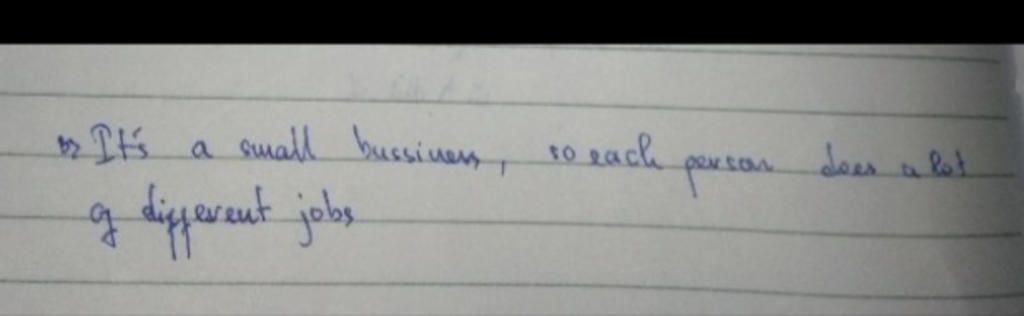 It's a small bussiness, so each person does a lot
of different jobs